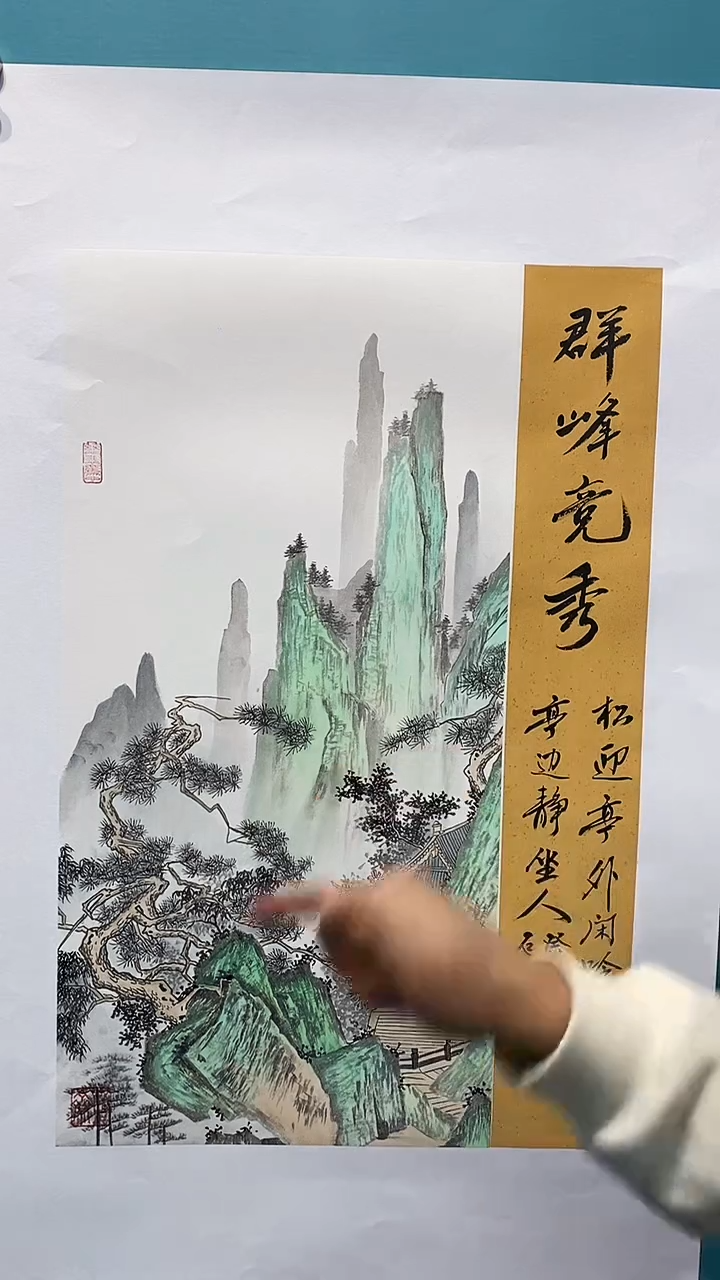 群峰竞秀
松迎亭外闲
亭边静坐人